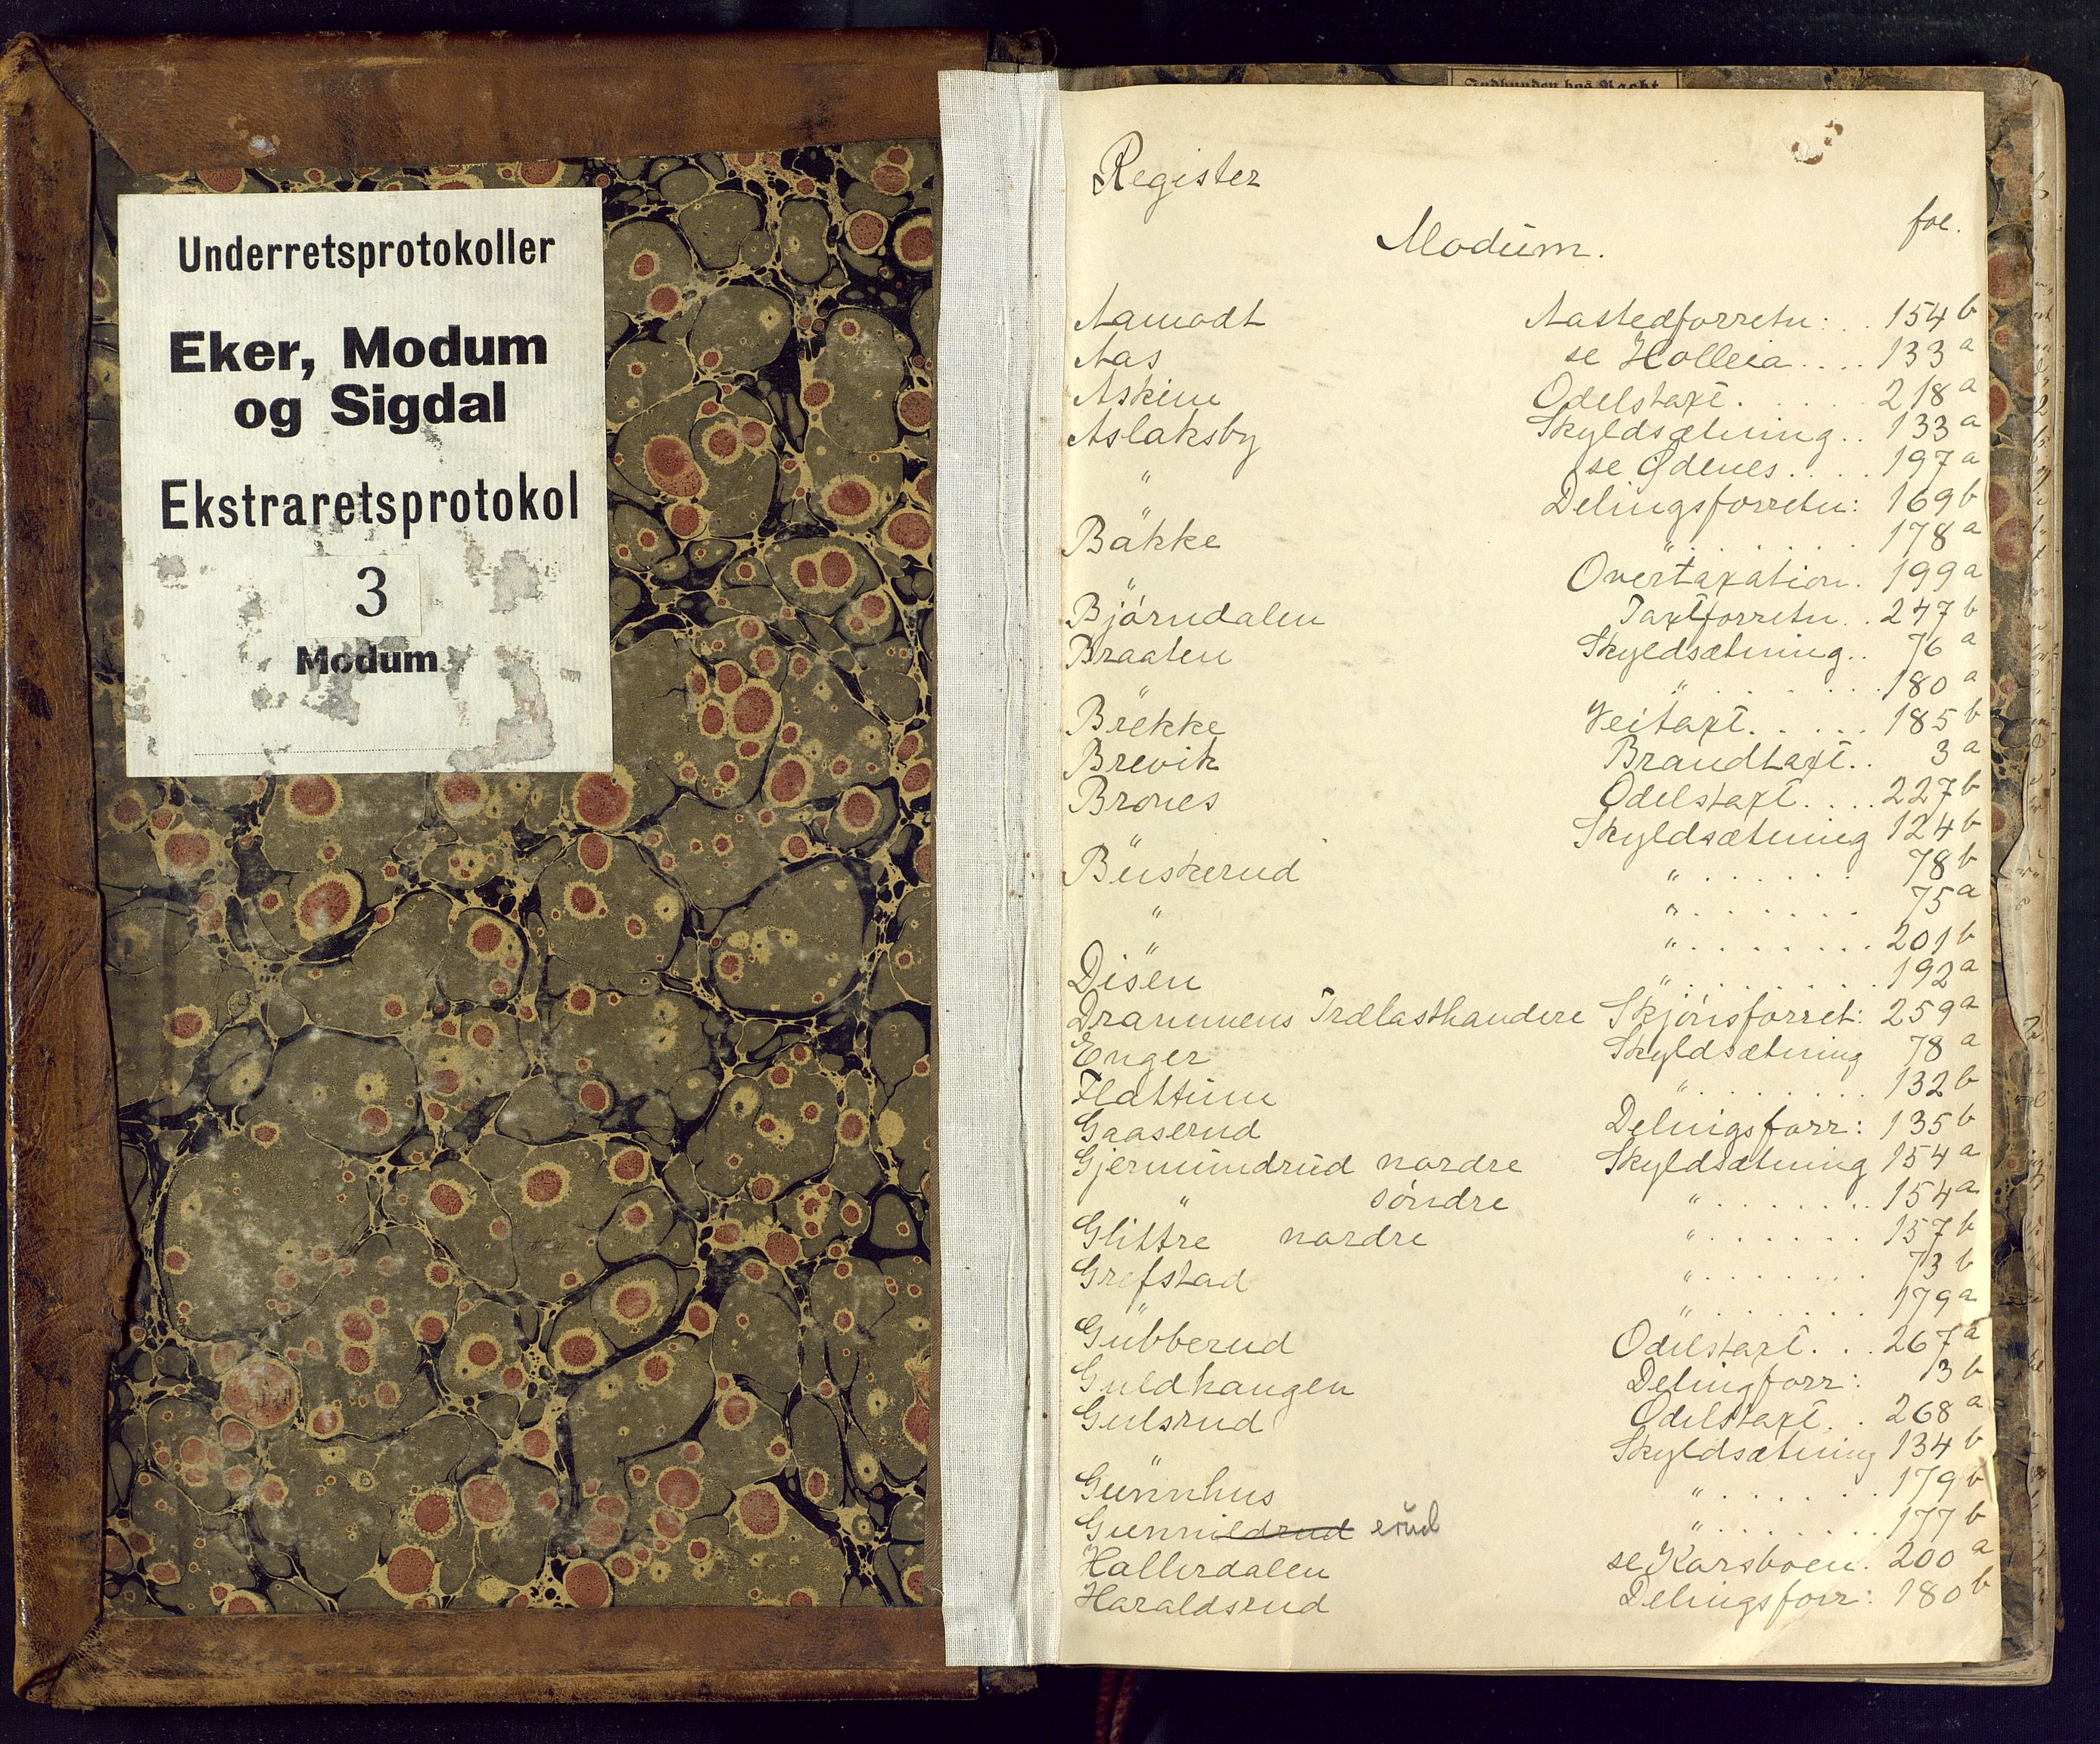 Underretsprotokoller
Eker, Modum
og Sigdal
Ekstraretsprotokol
3
Modum
Indbunden hos Nacht
Register
fol.
Modum.
Aamodt Aastedforretn: . . 154 b
Aas se Holleia . . . . 133 a
Askim Odelstaxt . . . . . . 218 a
Aslaksby Skyldsætning . . 133 a
" se Ødenes . . . . 197 a
" Delingsforretn: 169 b
Bakke " . . . . . . 178 a
" Overtaxation . 199 a
Bjørndalen Taxtforretn . . 247 b
Braaten Skyldsætning . . 76 a
" " . . . . . . . . 180 a
Brekke Veitaxt . . . . . 185 b
Brevik Brandtaxt . . 3 a
Brones Odelstaxt . . . . 227 b
" Skyldsætning 124 b
Buskerud " . . . . . . 78 b
" " . . . . . . . 75 a
" " . . . . . . . . 201 b
Disen " . . . . . . . . 192 a
Drammens Trælasthandlere Skjønsforret: 259 a
Enger Skyldsætning 78 a
Flattum " . . . . . . . . 132 b
Gaaserud Delingsforr: 135 b
Gjermundrud nordre Skyldsætning 154 a
" søndre " . . . . . . . . 154 a
Glittre nordre " . . . . . . . 157 b
Grefstad " . . . . . . . . 73 b
" " . . . . . . . 179 a
Gubberud Odelstaxt . . . 267 a
Guldhaugen Delingforr: 13 b
Gulsrud Odelstaxt . . 268 a
" Skyldsætning 134 b
Gunnhus " . . . . . . . 179 b
Gunnildrud erud " . . . . . . . . 177 b
Hallerdalen se Karsboen . 200 a
Haraldsrud Delingsforr: 180 b